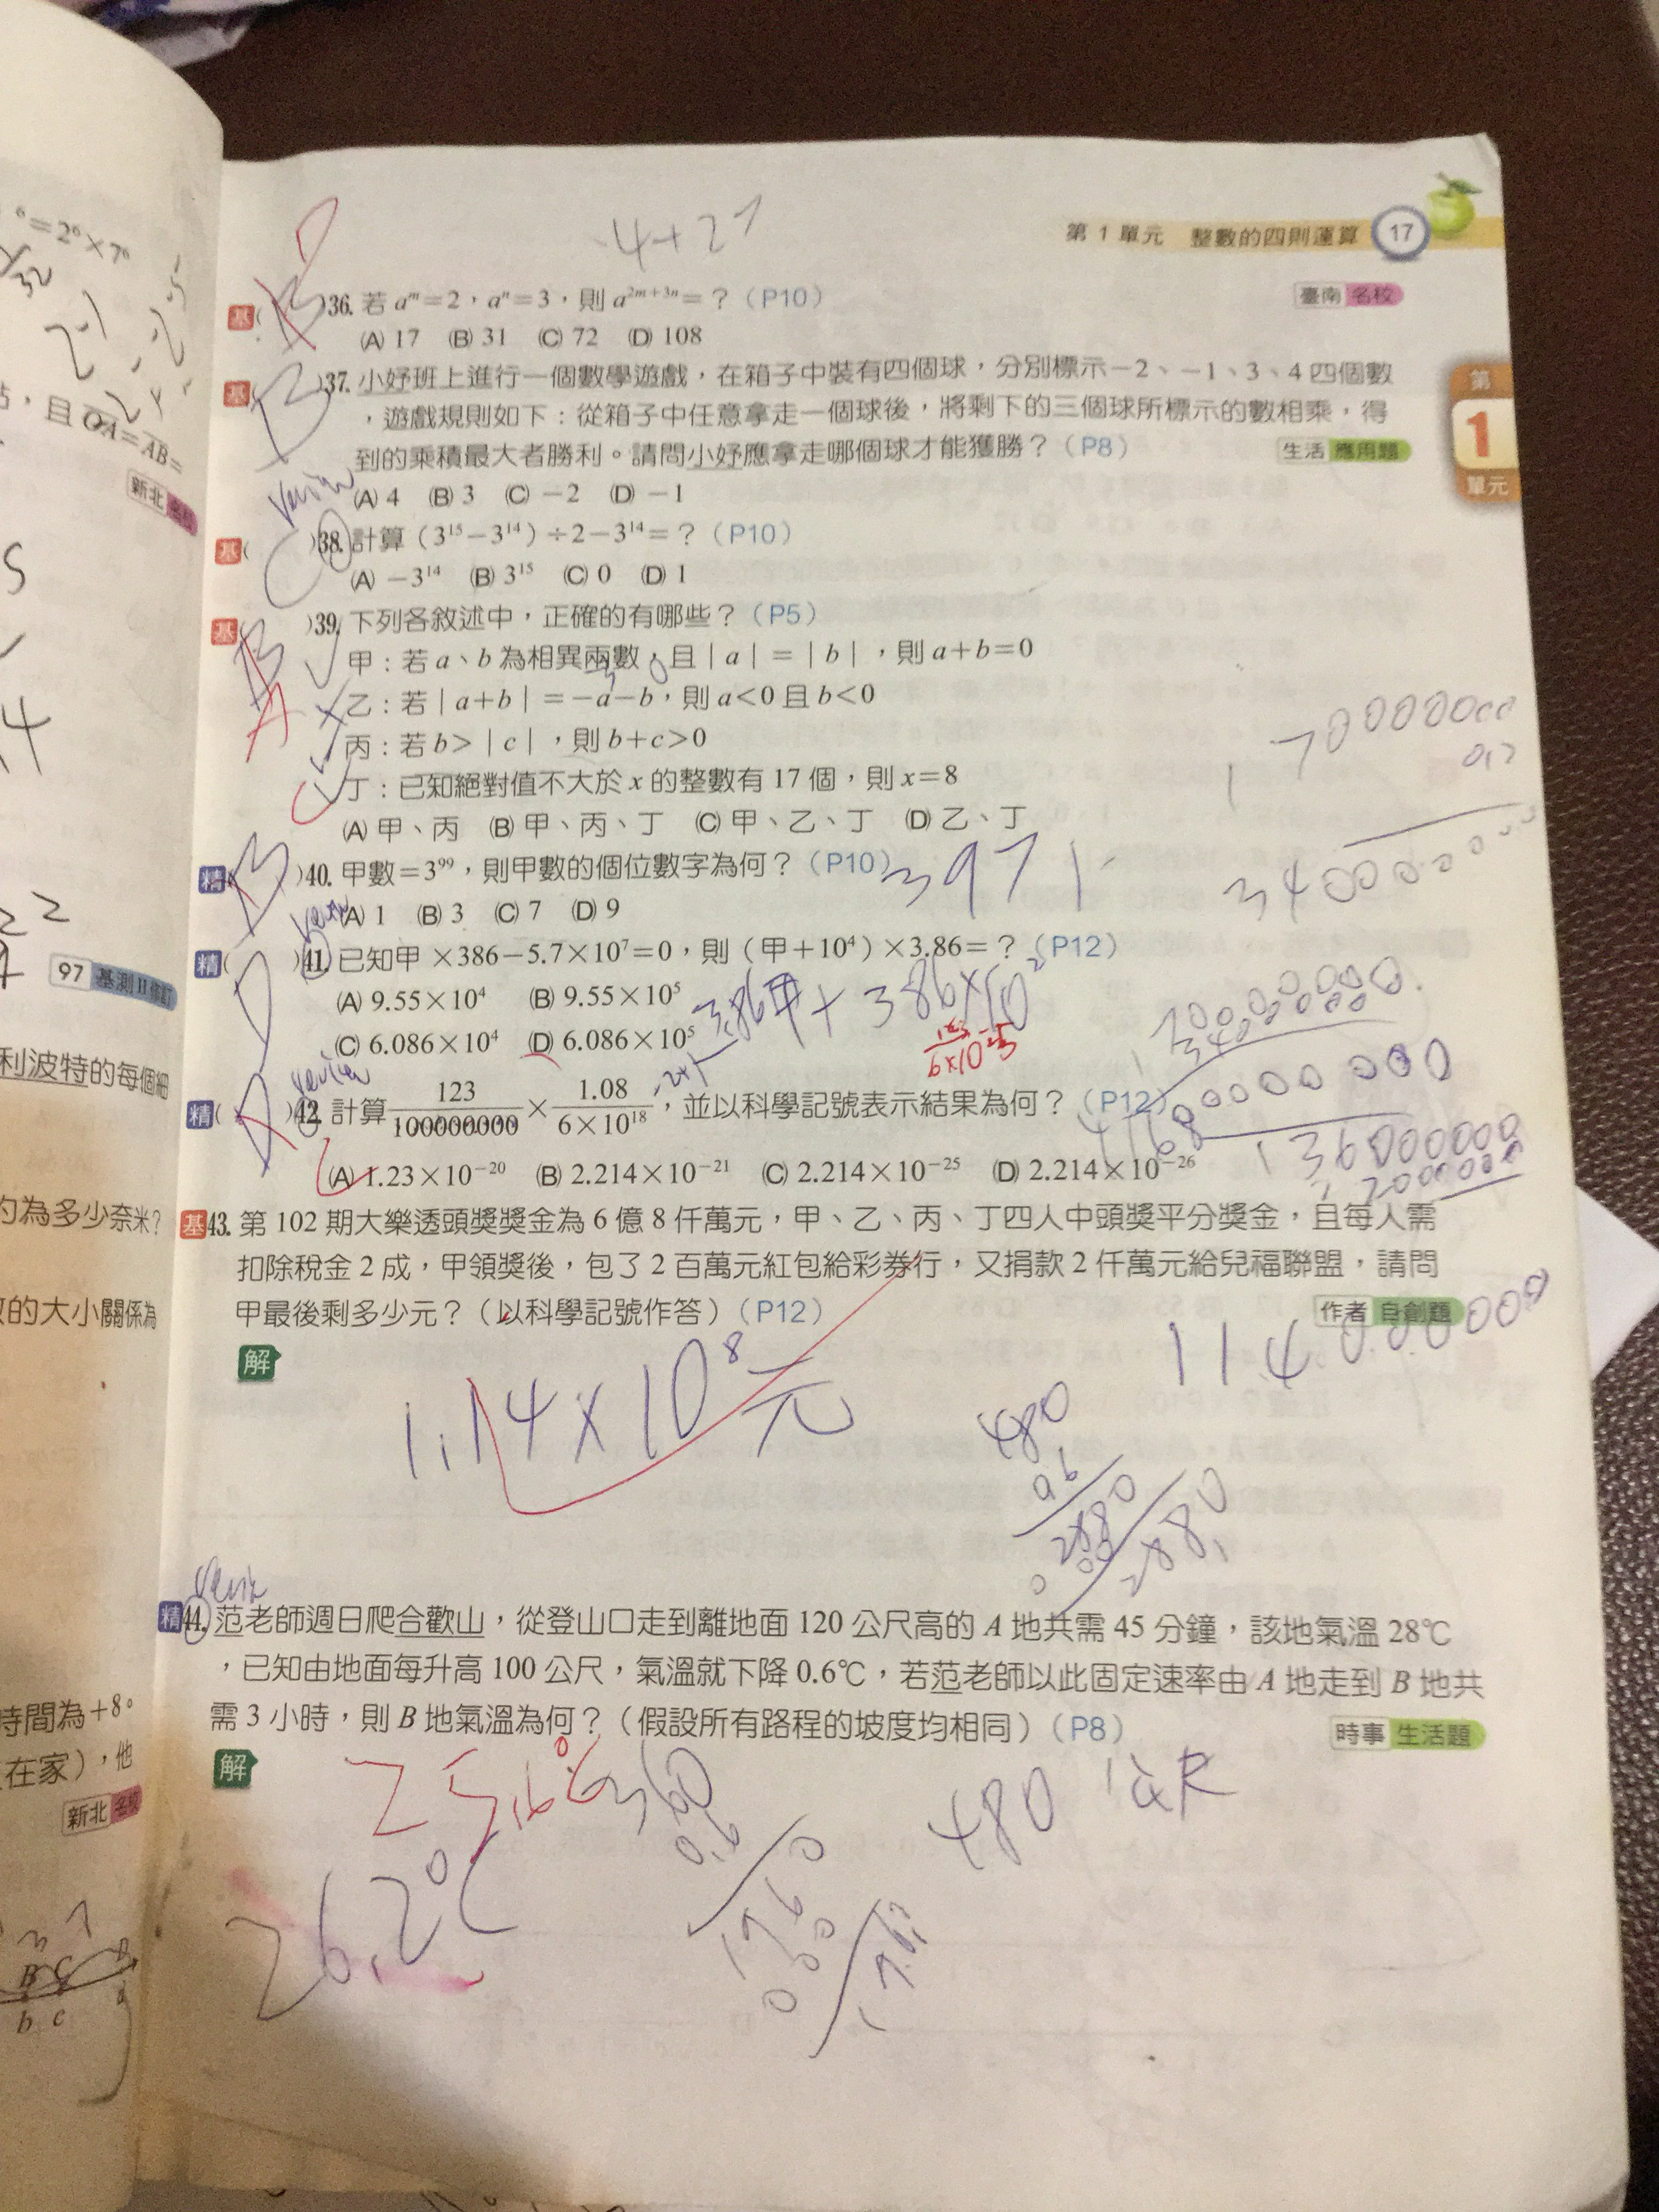 第 1 單元　整數的四則運算　17
-4+27
基(　)36. 若 aᵐ=2，aⁿ=3，則 a²ᵐ⁺³ⁿ=？（P10）　臺南 名校
(A) 17　(B) 31　(C) 72　(D) 108
基(　B　)37. 小妤班上進行一個數學遊戲，在箱子中裝有四個球，分別標示－2、－1、3、4 四個數
，遊戲規則如下：從箱子中任意拿走一個球後，將剩下的三個球所標示的數相乘，得
到的乘積最大者勝利。請問小妤應拿走哪個球才能獲勝？（P8）　生活 應用題
(A) 4　(B) 3　(C) －2　(D) －1
review
基(　C　)38. 計算（3¹⁵－3¹⁴）÷2－3¹⁴=？（P10）
(A) －3¹⁴　(B) 3¹⁵　(C) 0　(D) 1
基(　B　A　)39. 下列各敘述中，正確的有哪些？（P5）
甲：若 a、b 為相異兩數，且｜a｜=｜b｜，則 a+b=0
乙：若｜a+b｜=－a－b，則 a<0 且 b<0
丙：若 b>｜c｜，則 b+c>0
丁：已知絕對值不大於 x 的整數有 17 個，則 x=8
(A) 甲、丙　(B) 甲、丙、丁　(C) 甲、乙、丁　(D) 乙、丁
精(　B　)40. 甲數=3⁹⁹，則甲數的個位數字為何？（P10）　3 9 7 1
(A) 1　(B) 3　(C) 7　(D) 9
精(　D　)41. 已知甲 ×386－5.7×10⁷=0，則（甲+10⁴）×3.86=？（P12）
(A) 9.55×10⁴　(B) 9.55×10⁵
(C) 6.086×10⁴　(D) 6.086×10⁵
3.86甲+386×10²
review
精(　)42. 計算 123/100000000 × 1.08/6×10¹⁸，並以科學記號表示結果為何？（P12）
(A) 1.23×10⁻²⁰　(B) 2.214×10⁻²¹　(C) 2.214×10⁻²⁵　(D) 2.214×10⁻²⁶
基43. 第 102 期大樂透頭獎獎金為 6 億 8 仟萬元，甲、乙、丙、丁四人中頭獎平分獎金，且每人需
扣除稅金 2 成，甲領獎後，包了 2 百萬元紅包給彩券行，又捐款 2 仟萬元給兒福聯盟，請問
甲最後剩多少元？（以科學記號作答）（P12）　作者 自創題
解
1.14×10⁸元
114000000
480
精44. 范老師週日爬合歡山，從登山口走到離地面 120 公尺高的 A 地共需 45 分鐘，該地氣溫 28℃
，已知由地面每升高 100 公尺，氣溫就下降 0.6℃，若范老師以此固定速率由 A 地走到 B 地共
需 3 小時，則 B 地氣溫為何？（假設所有路程的坡度均相同）（P8）　時事 生活題
解
480 公尺
26.2℃
360
0.6
°=2°×7°
，且 OA=AB=
新北 名校
97 基測II 修訂
利波特的每個細
為多少奈米？
的大小關係為
時間為+8。
在家），他
新北 名校
b c